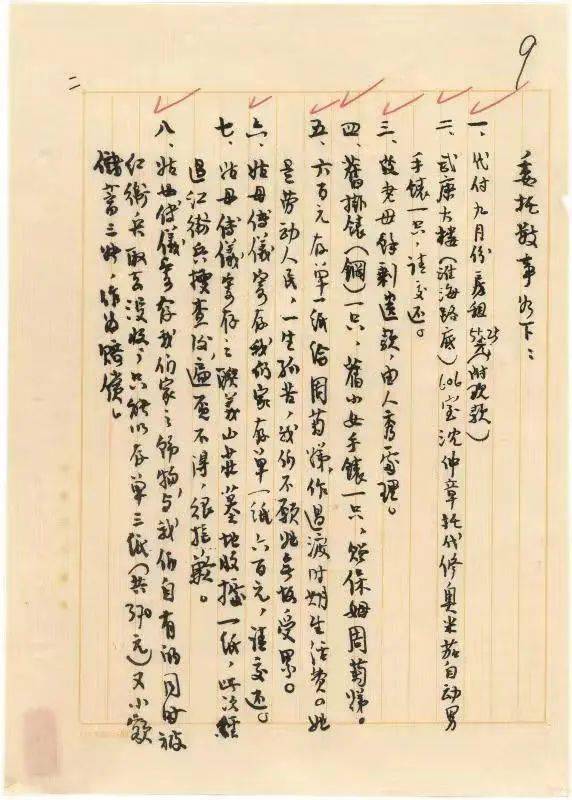 9
二
委托数事如下:
一、代付九月份房租55.29元(附现款)
二、武康大楼(淮海路底)606室沈仲章托代修奥米茄自动男
手錶一只,請交还。
三、故老母餘剩遺款,由人秀處理。
四、舊掛錶(鋼)一只,舊小女手錶一只,赠保姆周菊娣。
五、六百元存单一纸给周菊娣,作过渡时期生活费。她
是劳动人民,一生孤苦,我们不愿她无故受累。
六、姑母傅儀寄存我们家存单一纸六百元,請交还。
七、姑母傅儀寄存之联義山莊墓地收据一纸,此次經
过红衛兵搜查后遍覓不得,很抱歉。
八、姑母傅儀寄存我们家之飾物,与我们自有的同时被
红衛兵取去没收,只能以存单三纸(共370元)又小額
儲蓄三张,作为賠償。